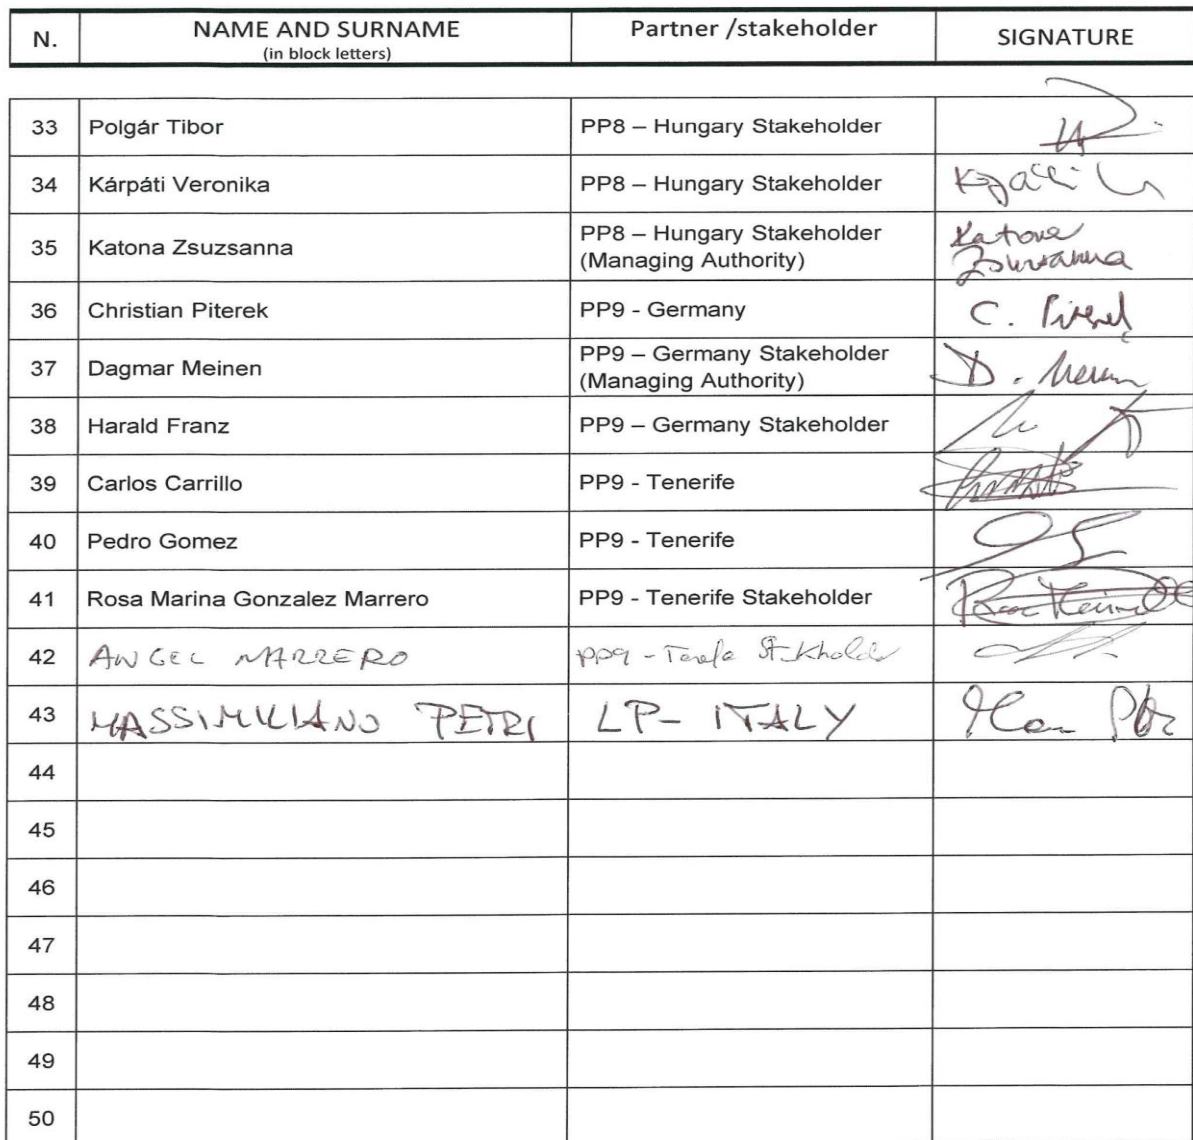 N. NAME AND SURNAME Partner /stakeholder SIGNATURE
(in block letters)
33 Polgár Tibor PP8 – Hungary Stakeholder
34 Kárpáti Veronika PP8 – Hungary Stakeholder
35 Katona Zsuzsanna PP8 – Hungary Stakeholder Katona
(Managing Authority) Zsuzsanna
36 Christian Piterek PP9 - Germany C. Piterek
37 Dagmar Meinen PP9 – Germany Stakeholder D. Meinen
(Managing Authority)
38 Harald Franz PP9 – Germany Stakeholder
39 Carlos Carrillo PP9 - Tenerife
40 Pedro Gomez PP9 - Tenerife
41 Rosa Marina Gonzalez Marrero PP9 - Tenerife Stakeholder
42 ANGEL MARRERO PP9 -
43 MASSIMILIANO PETRI LP- ITALY
44
45
46
47
48
49
50